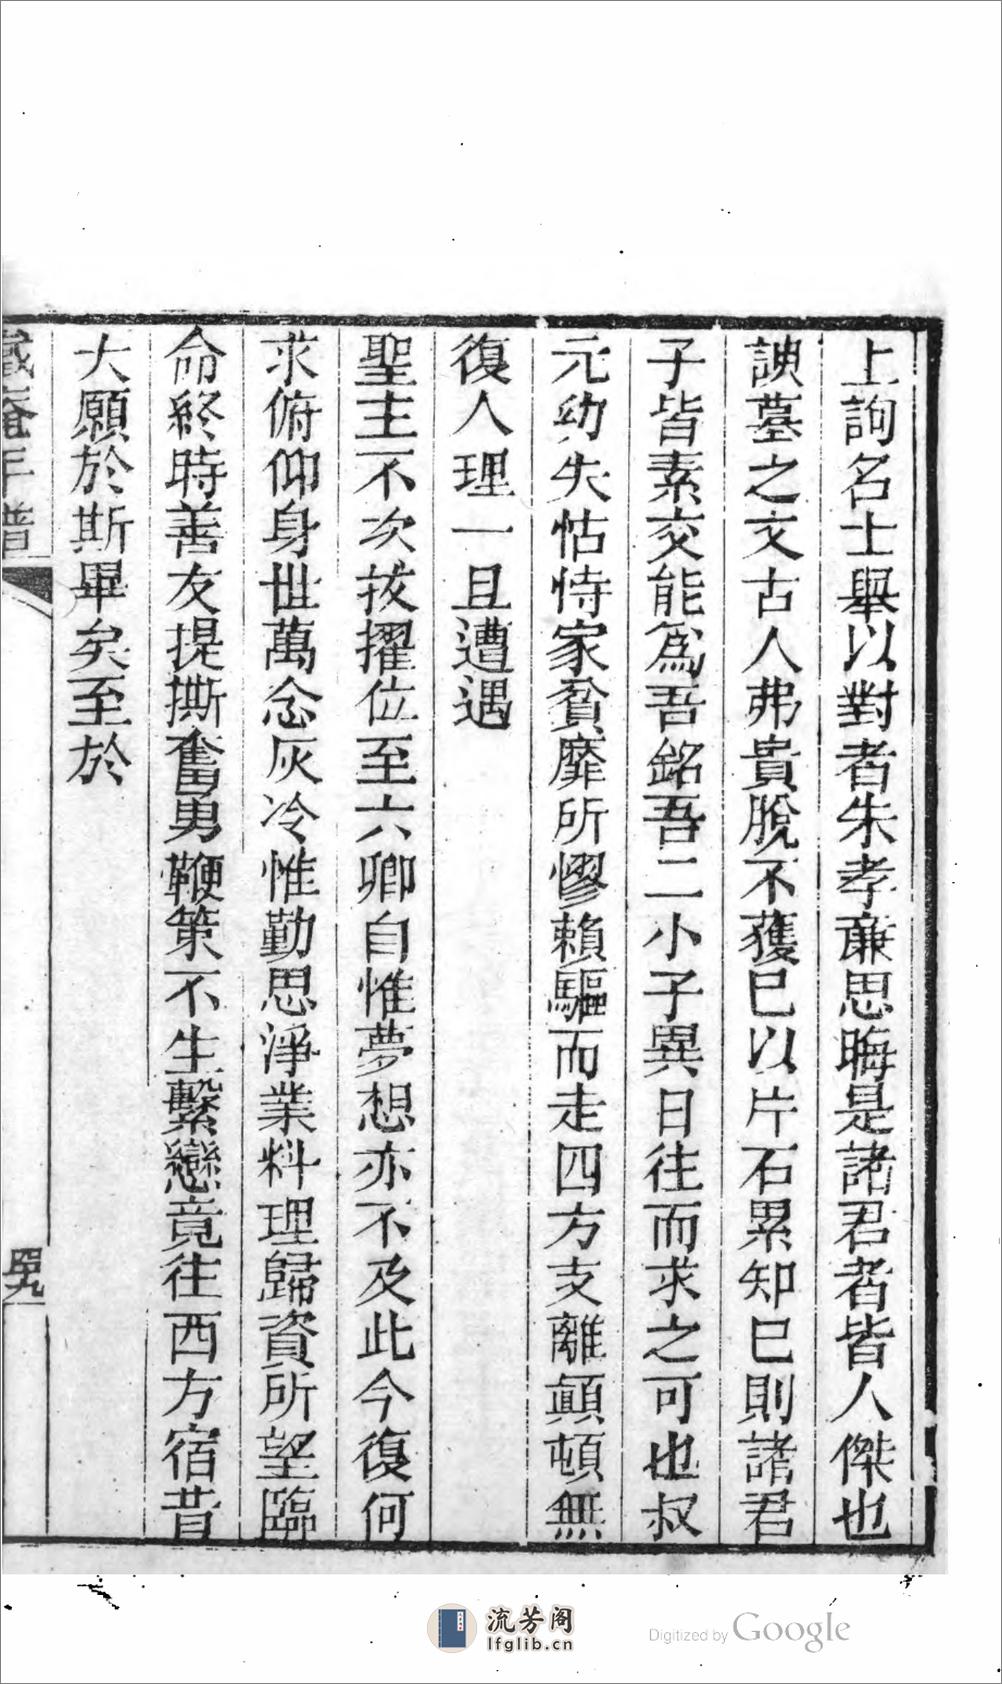 上詢名士舉以對者朱孝廉思晦是諸君者皆人傑也
諛墓之文古人弗貴脫不獲已以片石累知已則諸君
子皆素交能爲吾銘吾二小子異日往而求之可也叔
元幼失怙恃家貧靡所慘賴驅而走四方支離顛頓無
復人理一旦遭遇
聖主不次拔擢位至六卿自惟夢想亦不及此今復何
求俯仰身世萬念灰冷惟勤思淨業料理歸資所望臨
命終時善友提撕奮勇鞭策不生繫戀竟往西方宿昔
大願於斯畢矣至於
年譜
四九
流芳阁
lfglib.cn
Digitized by Google